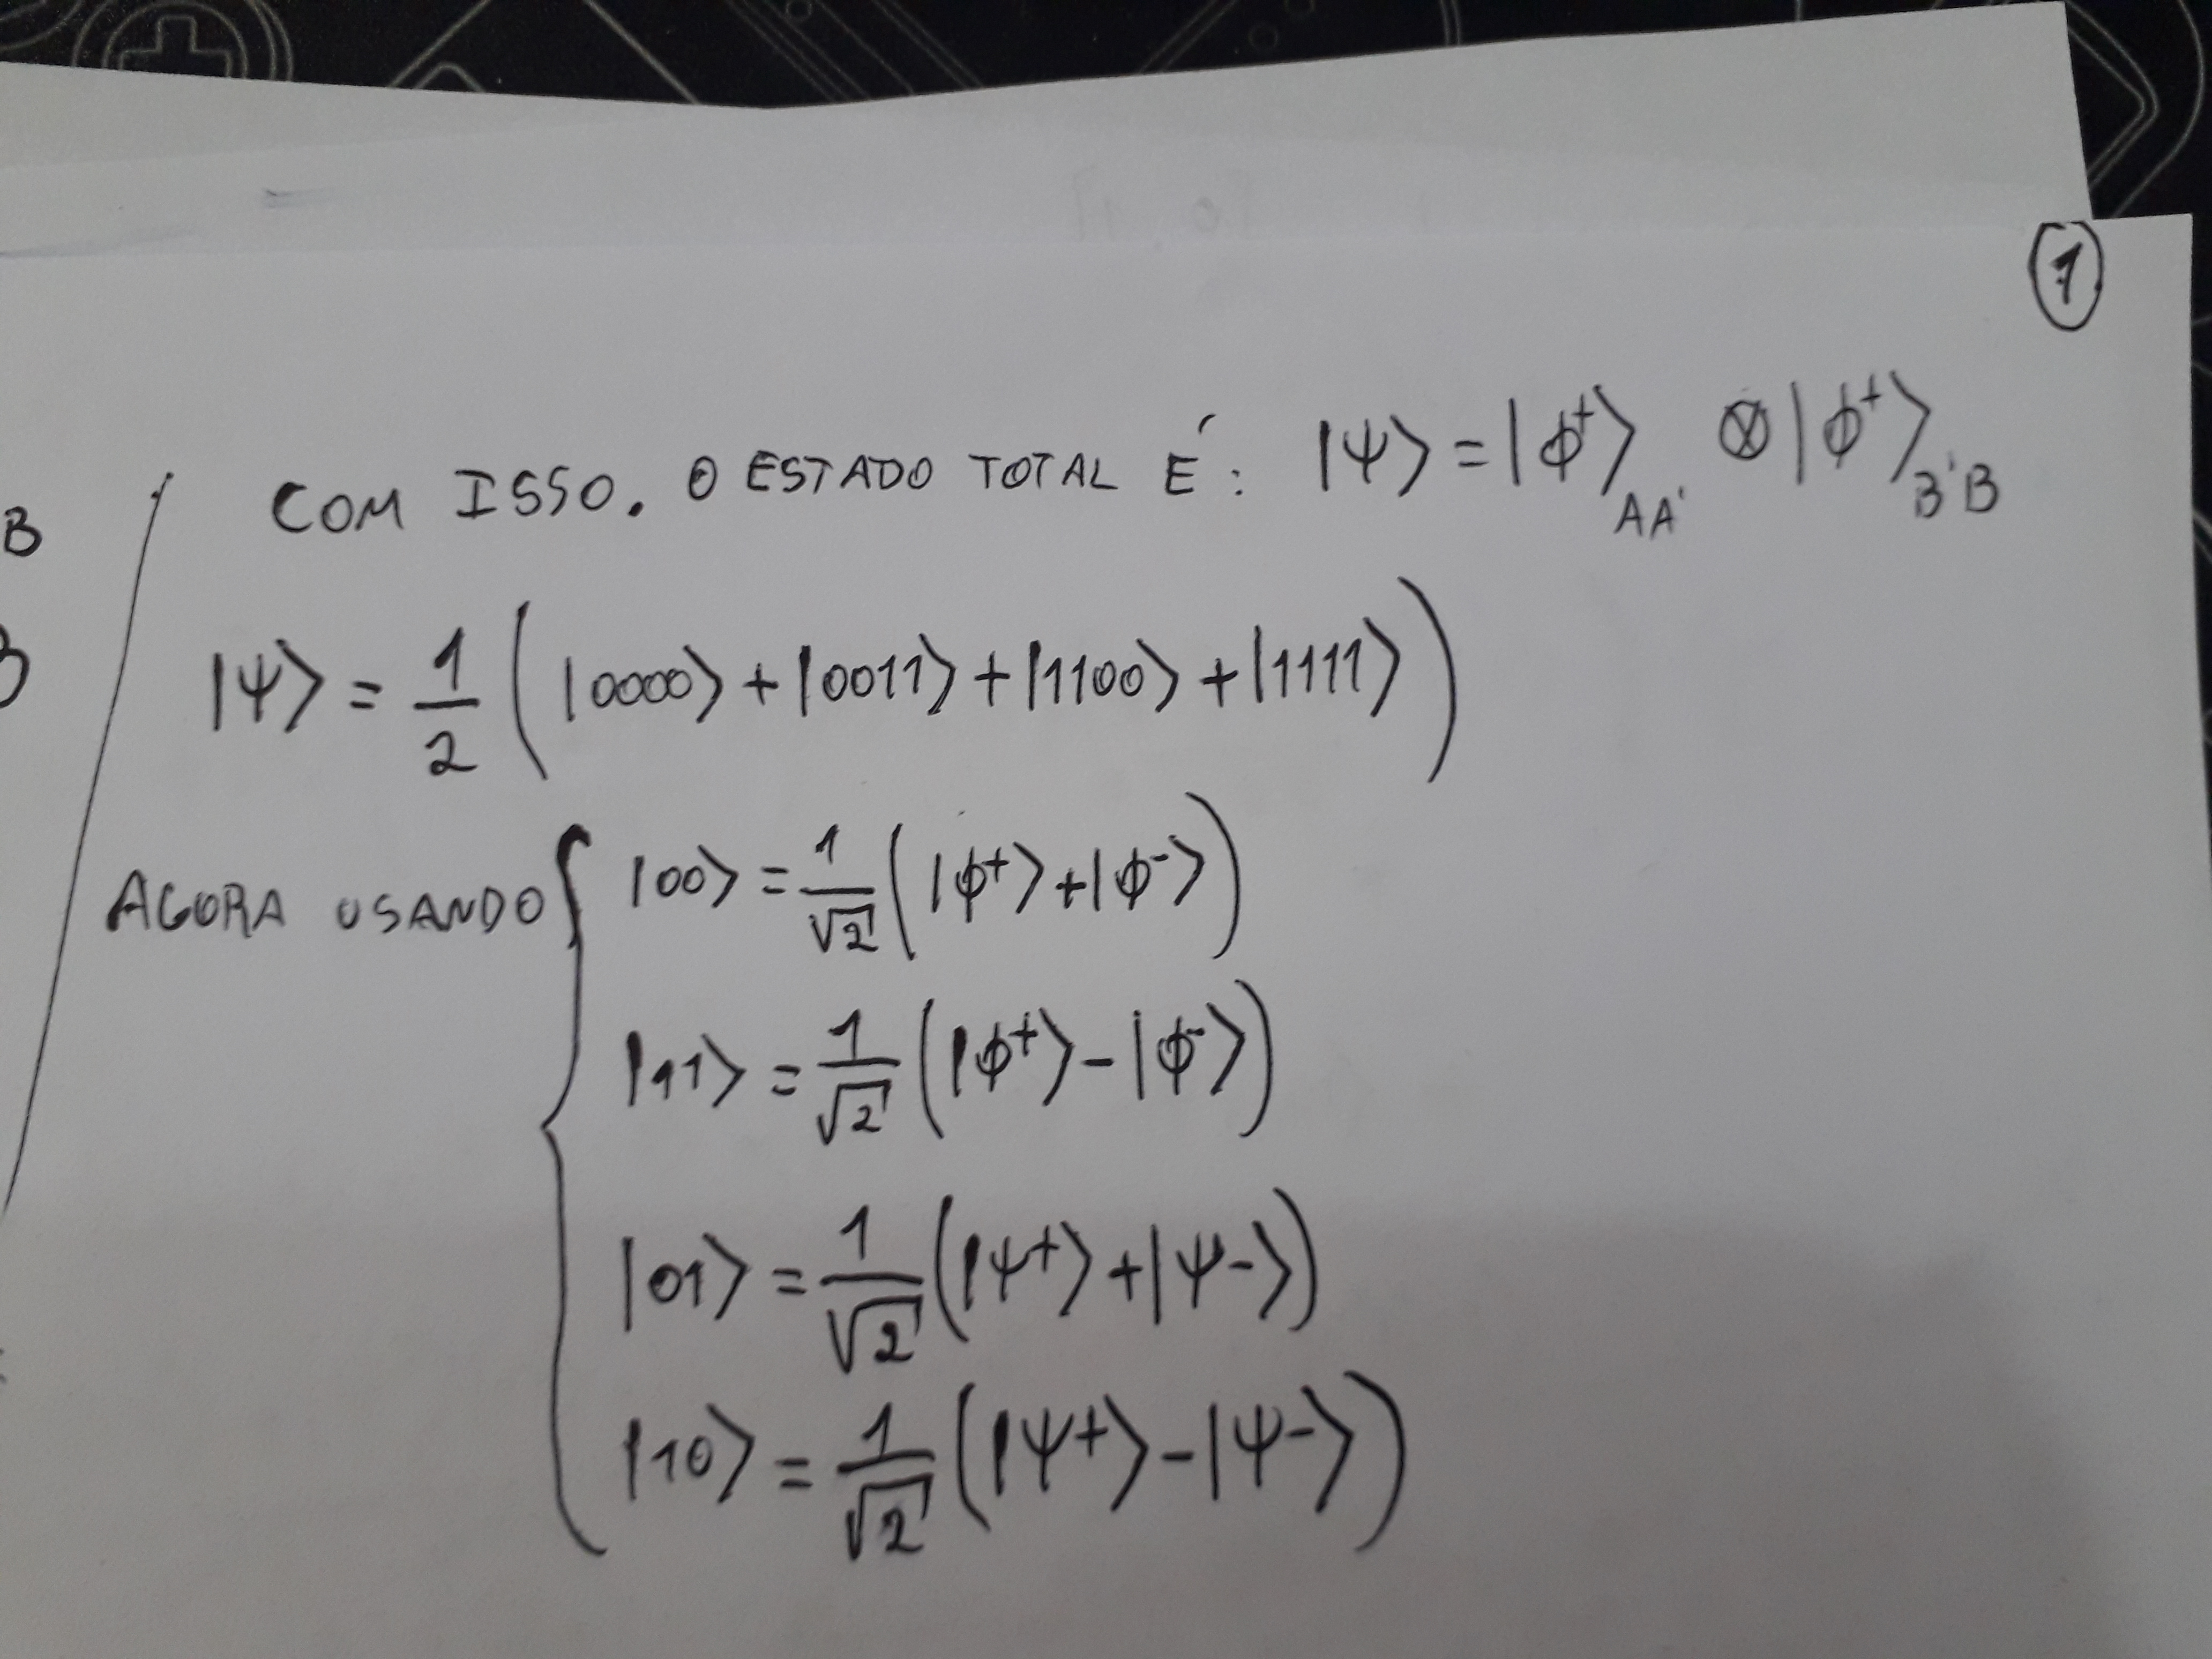 1
COM ISSO, O ESTADO TOTAL É: |ψ⟩ = |ϕ⁺⟩_AA' ⊗ |ϕ⁺⟩_B'B
B
|ψ⟩ = 1/2 (|0000⟩ + |0011⟩ + |1100⟩ + |1111⟩)
AGORA USANDO { |00⟩ = 1/√2 (|ϕ⁺⟩ + |ϕ⁻⟩)
|11⟩ = 1/√2 (|ϕ⁺⟩ - |ϕ⁻⟩)
|01⟩ = 1/√2 (|ψ+⟩ + |ψ-⟩)
|10⟩ = 1/√2 (|ψ+⟩ - |ψ-⟩)